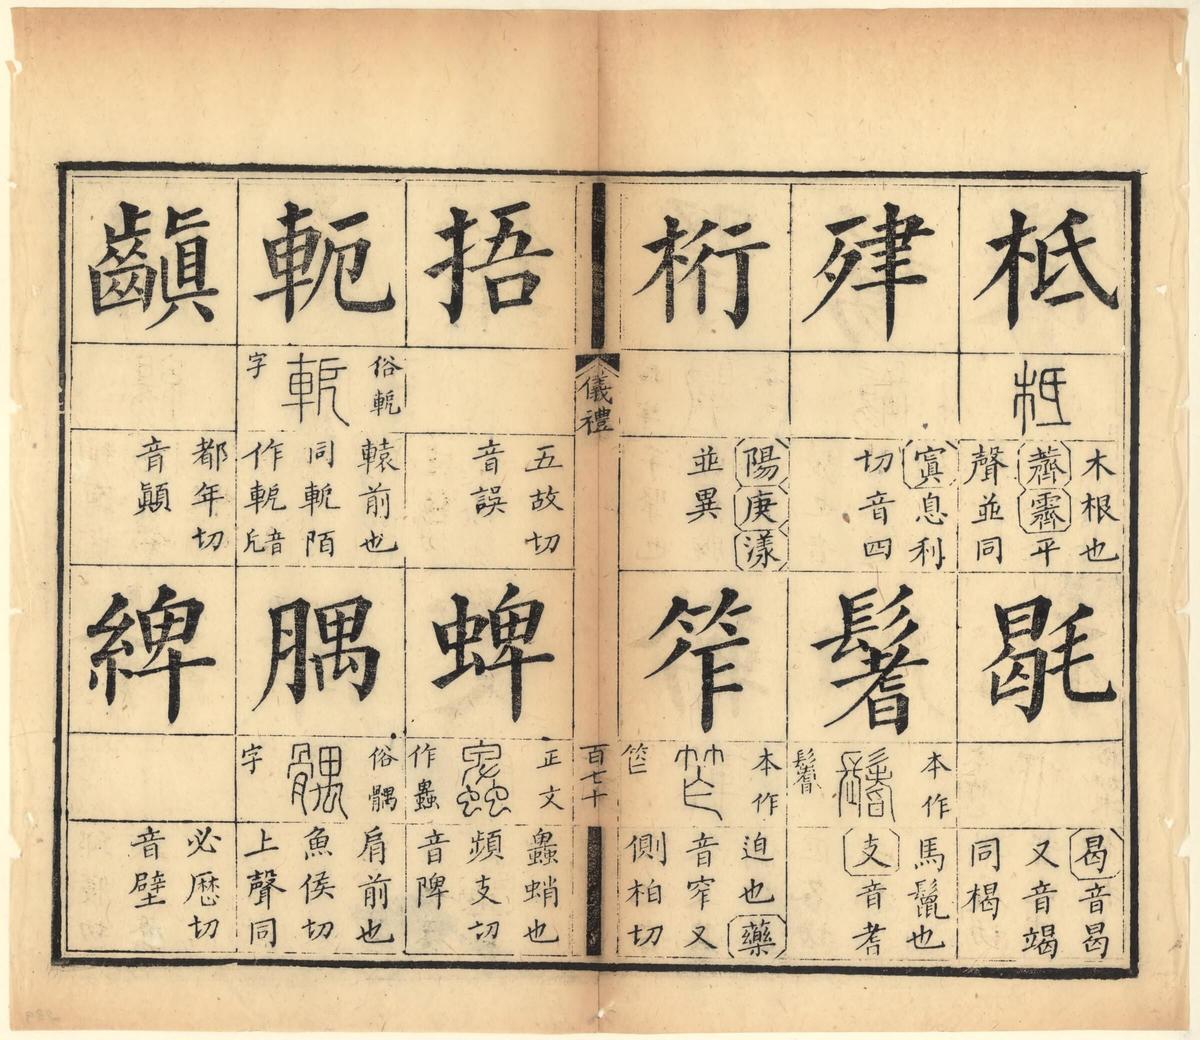 柢
柢
木根也
薺霽平
聲並同
毼
曷音曷
又音竭
同楬
肂
寘息利
切音四
鬐
本作
鬐
馬鬣也
支音耆
桁
陽庚漾
並異
笮
本作
笮
迫也藥
音窄又
側柏切
儀禮
百七十
捂
五故切
音誤
蜱
正文
作蠯
蠯蛸也
頻支切
音陴
軛
俗軶
軶
字
轅前也
同軶陌
作軶音
腢
俗髃
髃
字
肩前也
魚侯切
上聲同
齻
都年切
音顚
綼
必歷切
音壁